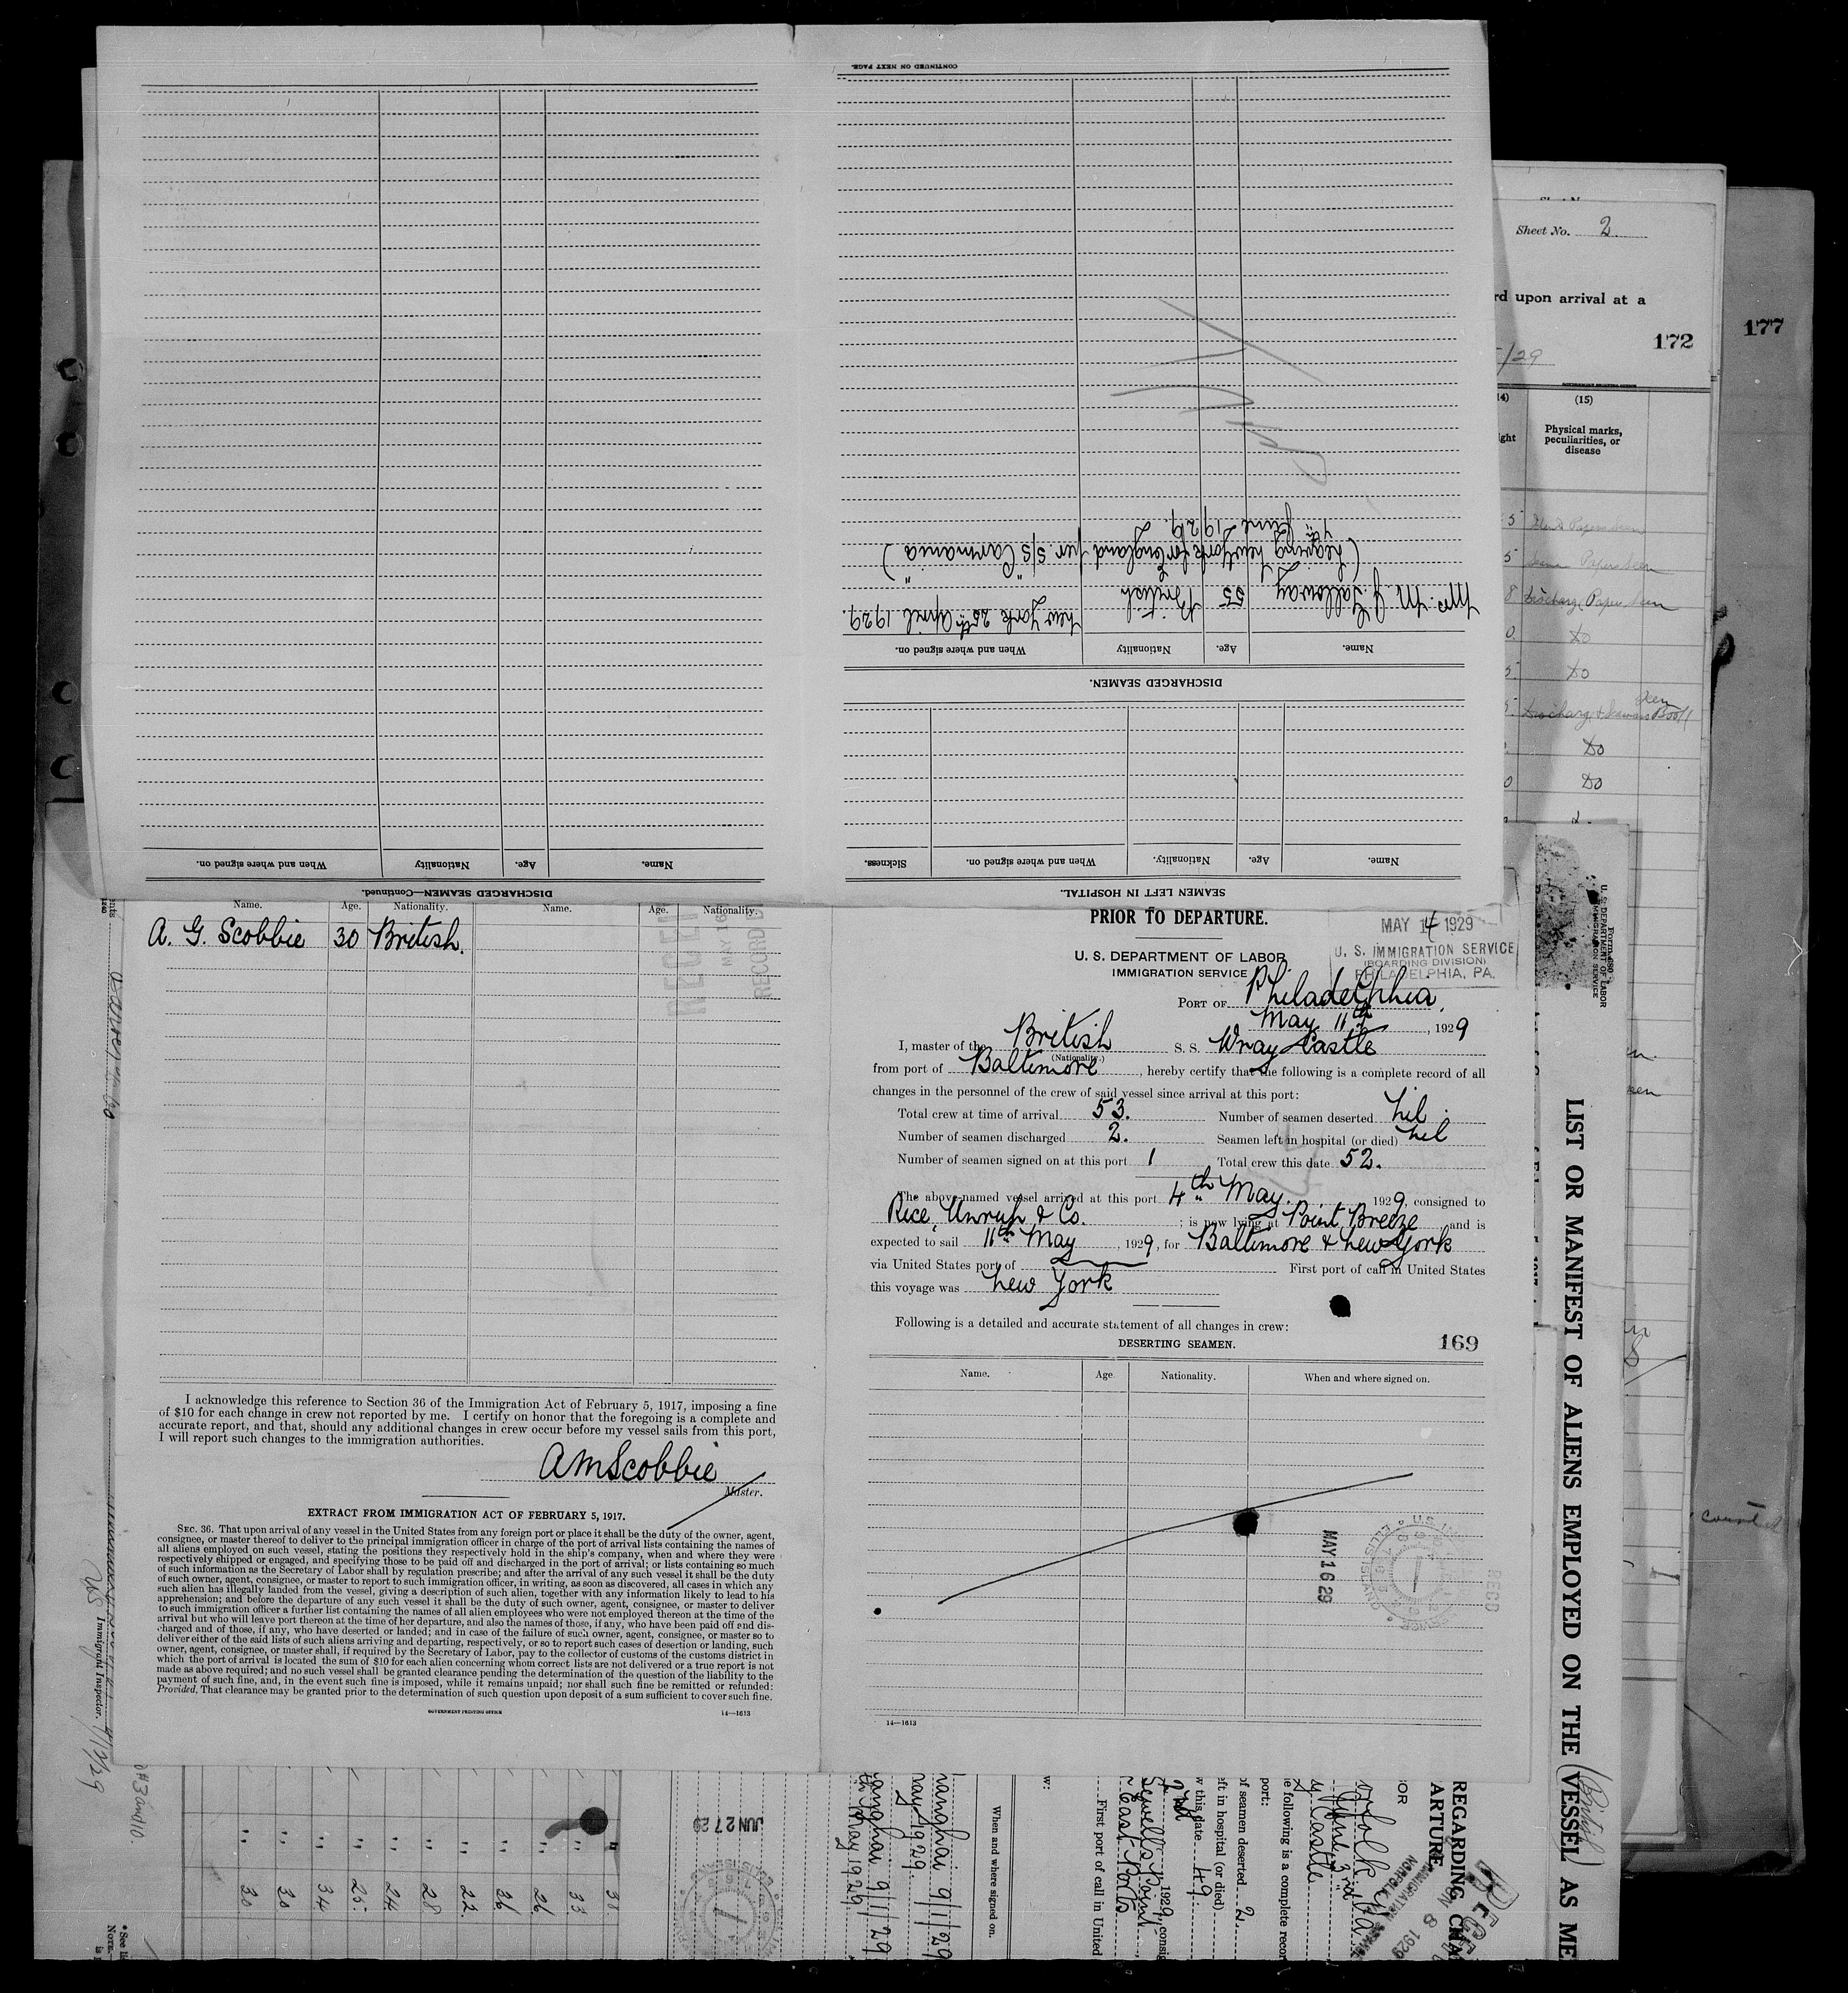 CONTINUED ON NEXT PAGE.
4th June 1929.
(Leaving New York for England per S/S "Carmania")
Mr. M. J. Galloway 55 British New York 25th April 1929.
Name. Age. Nationality When and where signed on.
DISCHARGED SEAMEN.
Name. Age. Nationality. When and where signed on. Sickness.
SEAMEN LEFT IN HOSPITAL.
Name. Age. Nationality When and where signed on.
DISCHARGED SEAMEN—Continued.
Name. Age. Nationality. Name. Age. Nationality.
A. G. Scobbie 30 British.
I acknowledge this reference to Section 36 of the Immigration Act of February 5, 1917, imposing a fine
of $10 for each change in crew not reported by me. I certify on honor that the foregoing is a complete and
accurate report, and that, should any additional changes in crew occur before my vessel sails from this port,
I will report such changes to the immigration authorities.
AMScobbie
Master.
EXTRACT FROM IMMIGRATION ACT OF FEBRUARY 5, 1917.
SEC. 36. That upon arrival of any vessel in the United States from any foreign port or place it shall be the duty of the owner, agent,
consignee, or master thereof to deliver to the principal immigration officer in charge of the port of arrival lists containing the names of
all aliens employed on such vessel, stating the positions they respectively hold in the ship's company, when and where they were
respectively shipped or engaged, and specifying those to be paid off and discharged in the port of arrival; or lists containing so much
of such information as the Secretary of Labor shall by regulation prescribe; and after the arrival of any such vessel it shall be the duty
of such owner, agent, consignee, or master to report to such immigration officer, in writing, as soon as discovered, all cases in which any
such alien has illegally landed from the vessel, giving a description of such alien, together with any information likely to lead to his
apprehension; and before the departure of any such vessel it shall be the duty of such owner, agent, consignee, or master to deliver
to such immigration officer a further list containing the names of all alien employees who were not employed thereon at the time of the
arrival but who will leave port thereon at the time of her departure, and also the names of those, if any, who have been paid off and dis-
charged and of those, if any, who have deserted or landed; and in case of the failure of such owner, agent, consignee, or master so to
deliver either of the said lists of such aliens arriving and departing, respectively, or so to report such cases of desertion or landing, such
owner, agent, consignee, or master shall, if required by the Secretary of Labor, pay to the collector of customs of the customs district in
which the port of arrival is located the sum of $10 for each alien concerning whom correct lists are not delivered or a true report is not
made as above required; and no such vessel shall be granted clearance pending the determination of the question of the liability to the
payment of such fine, and, in the event such fine is imposed, while it remains unpaid; nor shall such fine be remitted or refunded:
Provided, That clearance may be granted prior to the determination of such question upon deposit of a sum sufficient to cover such fine.
GOVERNMENT PRINTING OFFICE 14—1613
PRIOR TO DEPARTURE.
MAY 14 1929
U. S. IMMIGRATION SERVICE
(BOARDING DIVISION)
PHILADELPHIA, PA.
U. S. DEPARTMENT OF LABOR
IMMIGRATION SERVICE
PORT OF Philadelphia,
May 11th, 1929
I, master of the British S. S. Wray Castle
(Nationality.)
from port of Baltimore, hereby certify that the following is a complete record of all
changes in the personnel of the crew of said vessel since arrival at this port:
Total crew at time of arrival 53. Number of seamen deserted Nil.
Number of seamen discharged 2. Seamen left in hospital (or died) Nil
Number of seamen signed on at this port 1 Total crew this date 52.
The above-named vessel arrived at this port 4th May. 1929, consigned to
Rice, Unruh & Co.; is now lying at Point Breeze, and is
expected to sail 11th May, 1929, for Baltimore & New York
via United States port of First port of call in United States
this voyage was New York
Following is a detailed and accurate statement of all changes in crew:
DESERTING SEAMEN. 169
Name. Age Nationality. When and where signed on.
MAY 16 29
RECD
14—1613
Sheet No. 2.
rd upon arrival at a
172
177
/29
(15)
Physical marks,
peculiarities, or
disease
Do
Do
Do
Do
Form 680
U. S. DEPARTMENT OF LABOR
IMMIGRATION SERVICE
LIST OR MANIFEST OF ALIENS EMPLOYED ON THE (British) VESSEL AS ME
Immigrant Inspector.
REGARDING CHA
ARTURE
orfolk Va
Castle
e following is a complete recor
port:
of seamen deserted 2.
eft in hospital (or died)
this date 49.
1929, consig
Sewells Point
East Ports
First port of call in United
When and where signed on.
hanghai 9/1/29
May 1929.
hanghai 9/1/29
May 1929
JUN 27 29
33
26
26
22
28
24
25
34
30
30